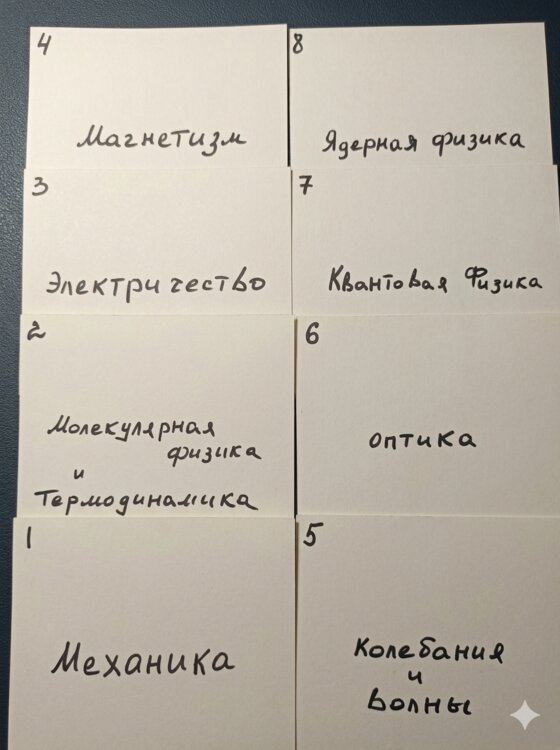 4
Магнетизм
8
Ядерная физика
3
Электричество
7
Квантовая Физика
2
Молекулярная
физика
и
Термодинамика
6
оптика
1
Механика
5
Колебания
и
Волны